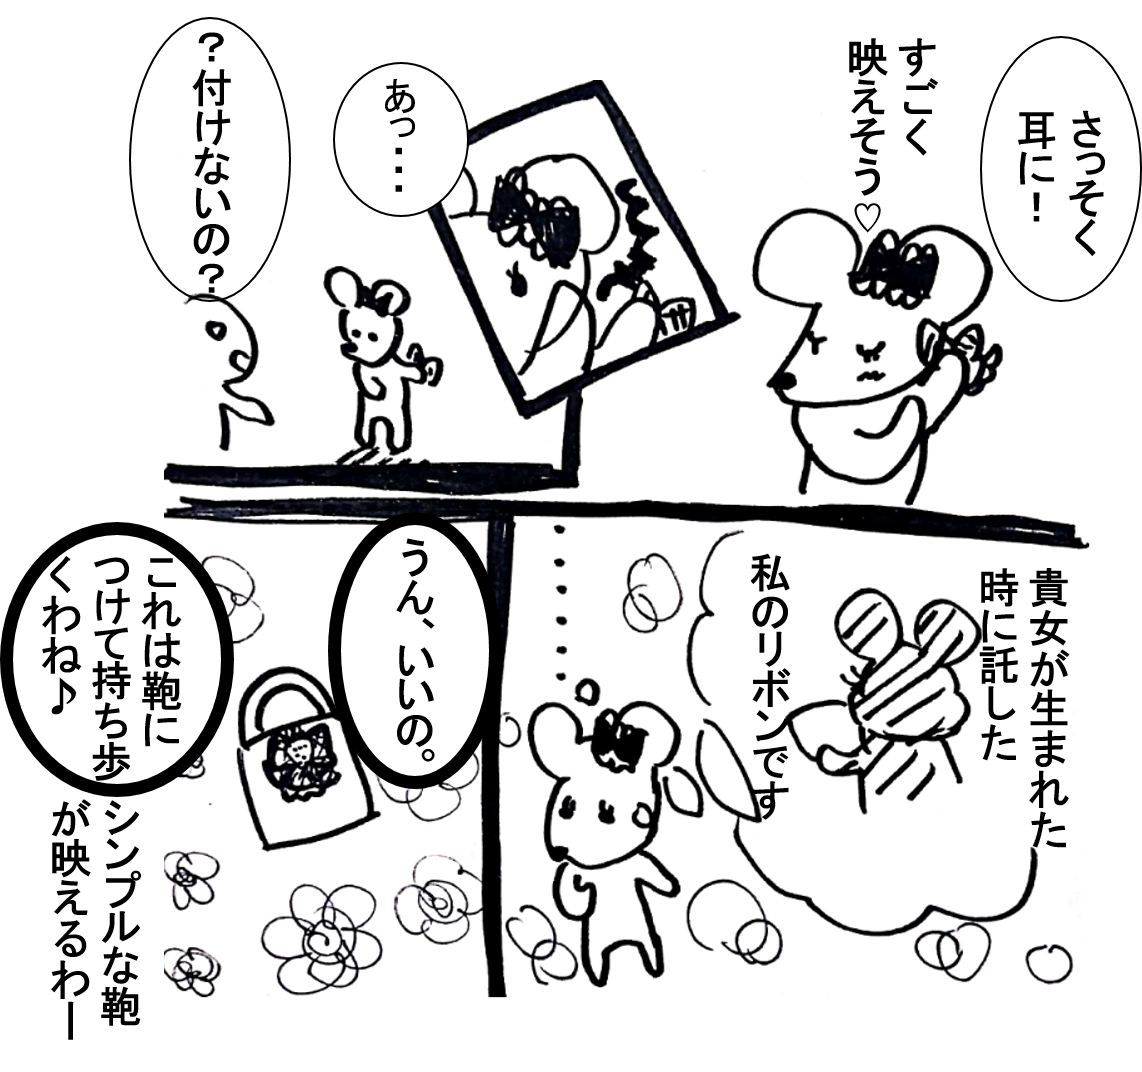 さっそく
耳に！
すごく
映えそう♡
あっ・・・
？付けないの？
貴女が生まれた
時に託した
私のリボンです
・・・・・
うん、いいの。
これは鞄に
つけて持ち歩
くわね♪
シンプルな鞄
が映えるわー